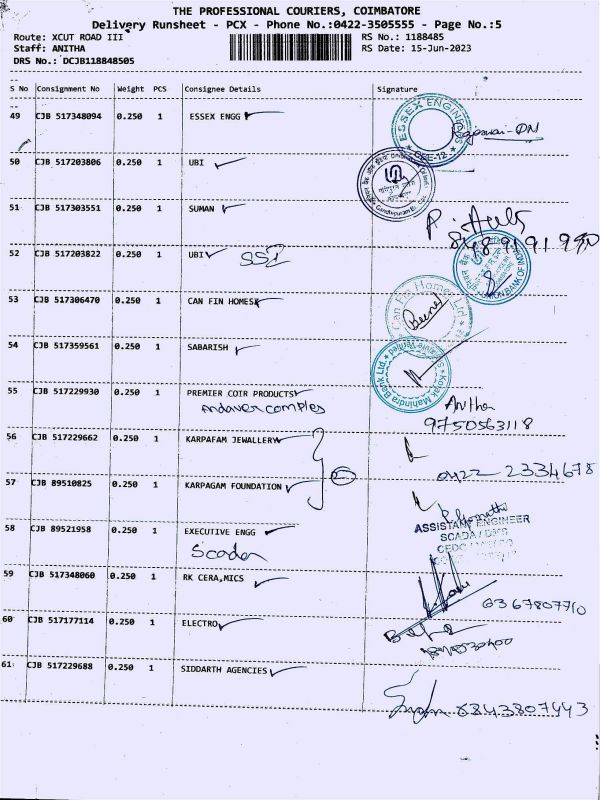 THE PROFESSIONAL COURIERS, COIMBATORE
Delivery Runsheet - PCX - Phone No.:0422-3505555 - Page No.:5
Route: XCUT ROAD III RS No.: 1188485
Staff: ANITHA RS Date: 15-Jun-2023
DRS No.: DCJB118848505
S No Consignment No Weight PCS Consignee Details Signature
49 CJB 517348094 0.250 1 ESSEX ENGG
ESSEX ENGINEERS
CBE-12
50 CJB 517203806 0.250 1 UBI
51 CJB 517303551 0.250 1 SUMAN
52 CJB 517203822 0.250 1 UBI SSI
UNION BANK OF
53 CJB 517306470 0.250 1 CAN FIN HOMES
Can Fin Homes Ltd
54 CJB 517359561 0.250 1 SABARISH
Kotak Mahindra Bank Ltd.
55 CJB 517229930 0.250 1 PREMIER COIR PRODUCTS
Andaver comples
Anitha
9750563118
56 CJB 517229662 0.250 1 KARPAFAM JEWALLERY
0422 2334678
57 CJB 89510825 0.250 1 KARPAGAM FOUNDATION
58 CJB 89521958 0.250 1 EXECUTIVE ENGG
Scada
ASSISTANT ENGINEER
SCADA / DMS
59 CJB 517348060 0.250 1 RK CERA,MICS
6367807710
60 CJB 517177114 0.250 1 ELECTRO
61 CJB 517229688 0.250 1 SIDDARTH AGENCIES
8843807443